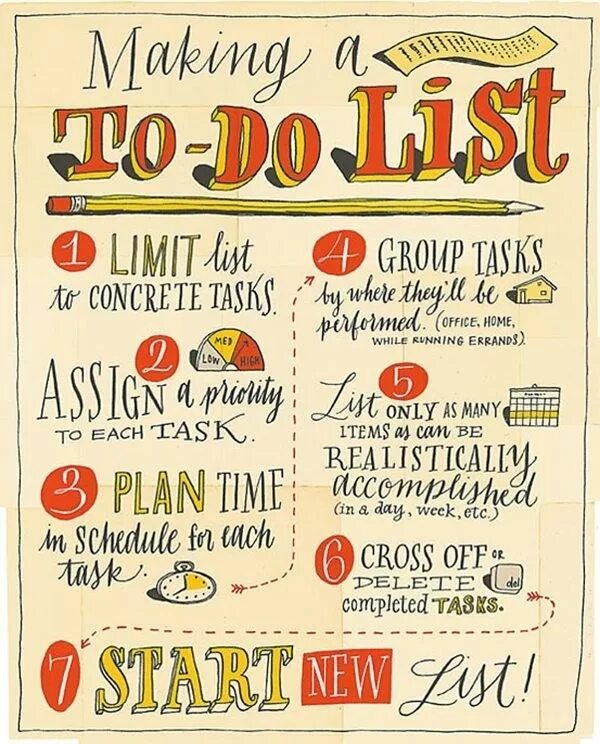 Making a
TO-DO LiSt
1 LIMIT list
to CONCRETE TASKS.
2
LOW MED HIGH
ASSIGN a priority
TO EACH TASK.
3 PLAN TIME
in Schedule for each
task.
4 GROUP TASKS
by where they'll be
performed. (OFFICE, HOME,
WHILE RUNNING ERRANDS).
5
List ONLY AS MANY
ITEMS as can BE
REALISTICALLY
accomplished
(in a day, week, etc.)
6 CROSS OFF OR
DELETE del
completed TASKS.
7 START NEW List!